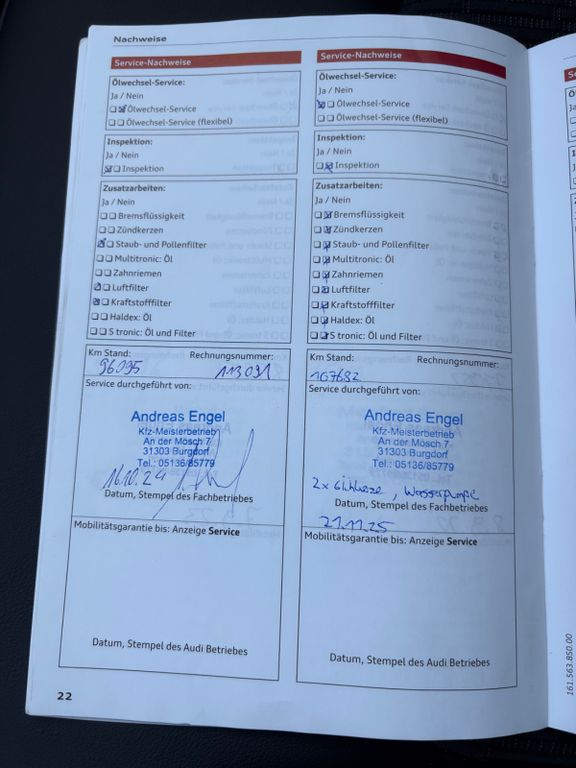 Nachweise
Service-Nachweise
Ölwechsel-Service:
Ja / Nein
Ölwechsel-Service
Ölwechsel-Service (flexibel)
Inspektion:
Ja / Nein
Inspektion
Zusatzarbeiten:
Ja / Nein
Bremsflüssigkeit
Zündkerzen
Staub- und Pollenfilter
Multitronic: Öl
Zahnriemen
Luftfilter
Kraftstofffilter
Haldex: Öl
S tronic: Öl und Filter
Km Stand: Rechnungsnummer:
96095 113091
Service durchgeführt von:
Andreas Engel
Kfz-Meisterbetrieb
An der Mösch 7
31303 Burgdorf
Tel.: 05136/85779
16.10.24
Datum, Stempel des Fachbetriebes
Mobilitätsgarantie bis: Anzeige Service
Datum, Stempel des Audi Betriebes
22
Service-Nachweise
Ölwechsel-Service:
Ja / Nein
Ölwechsel-Service
Ölwechsel-Service (flexibel)
Inspektion:
Ja / Nein
Inspektion
Zusatzarbeiten:
Ja / Nein
Bremsflüssigkeit
Zündkerzen
Staub- und Pollenfilter
Multitronic: Öl
Zahnriemen
Luftfilter
Kraftstofffilter
Haldex: Öl
S tronic: Öl und Filter
Km Stand: Rechnungsnummer:
107682
Service durchgeführt von:
Andreas Engel
Kfz-Meisterbetrieb
An der Mösch 7
31303 Burgdorf
Tel.: 05136/85779
2x , Wasserpumpe
Datum, Stempel des Fachbetriebes
21.11.25
Mobilitätsgarantie bis: Anzeige Service
Datum, Stempel des Audi Betriebes
161.563.850.00